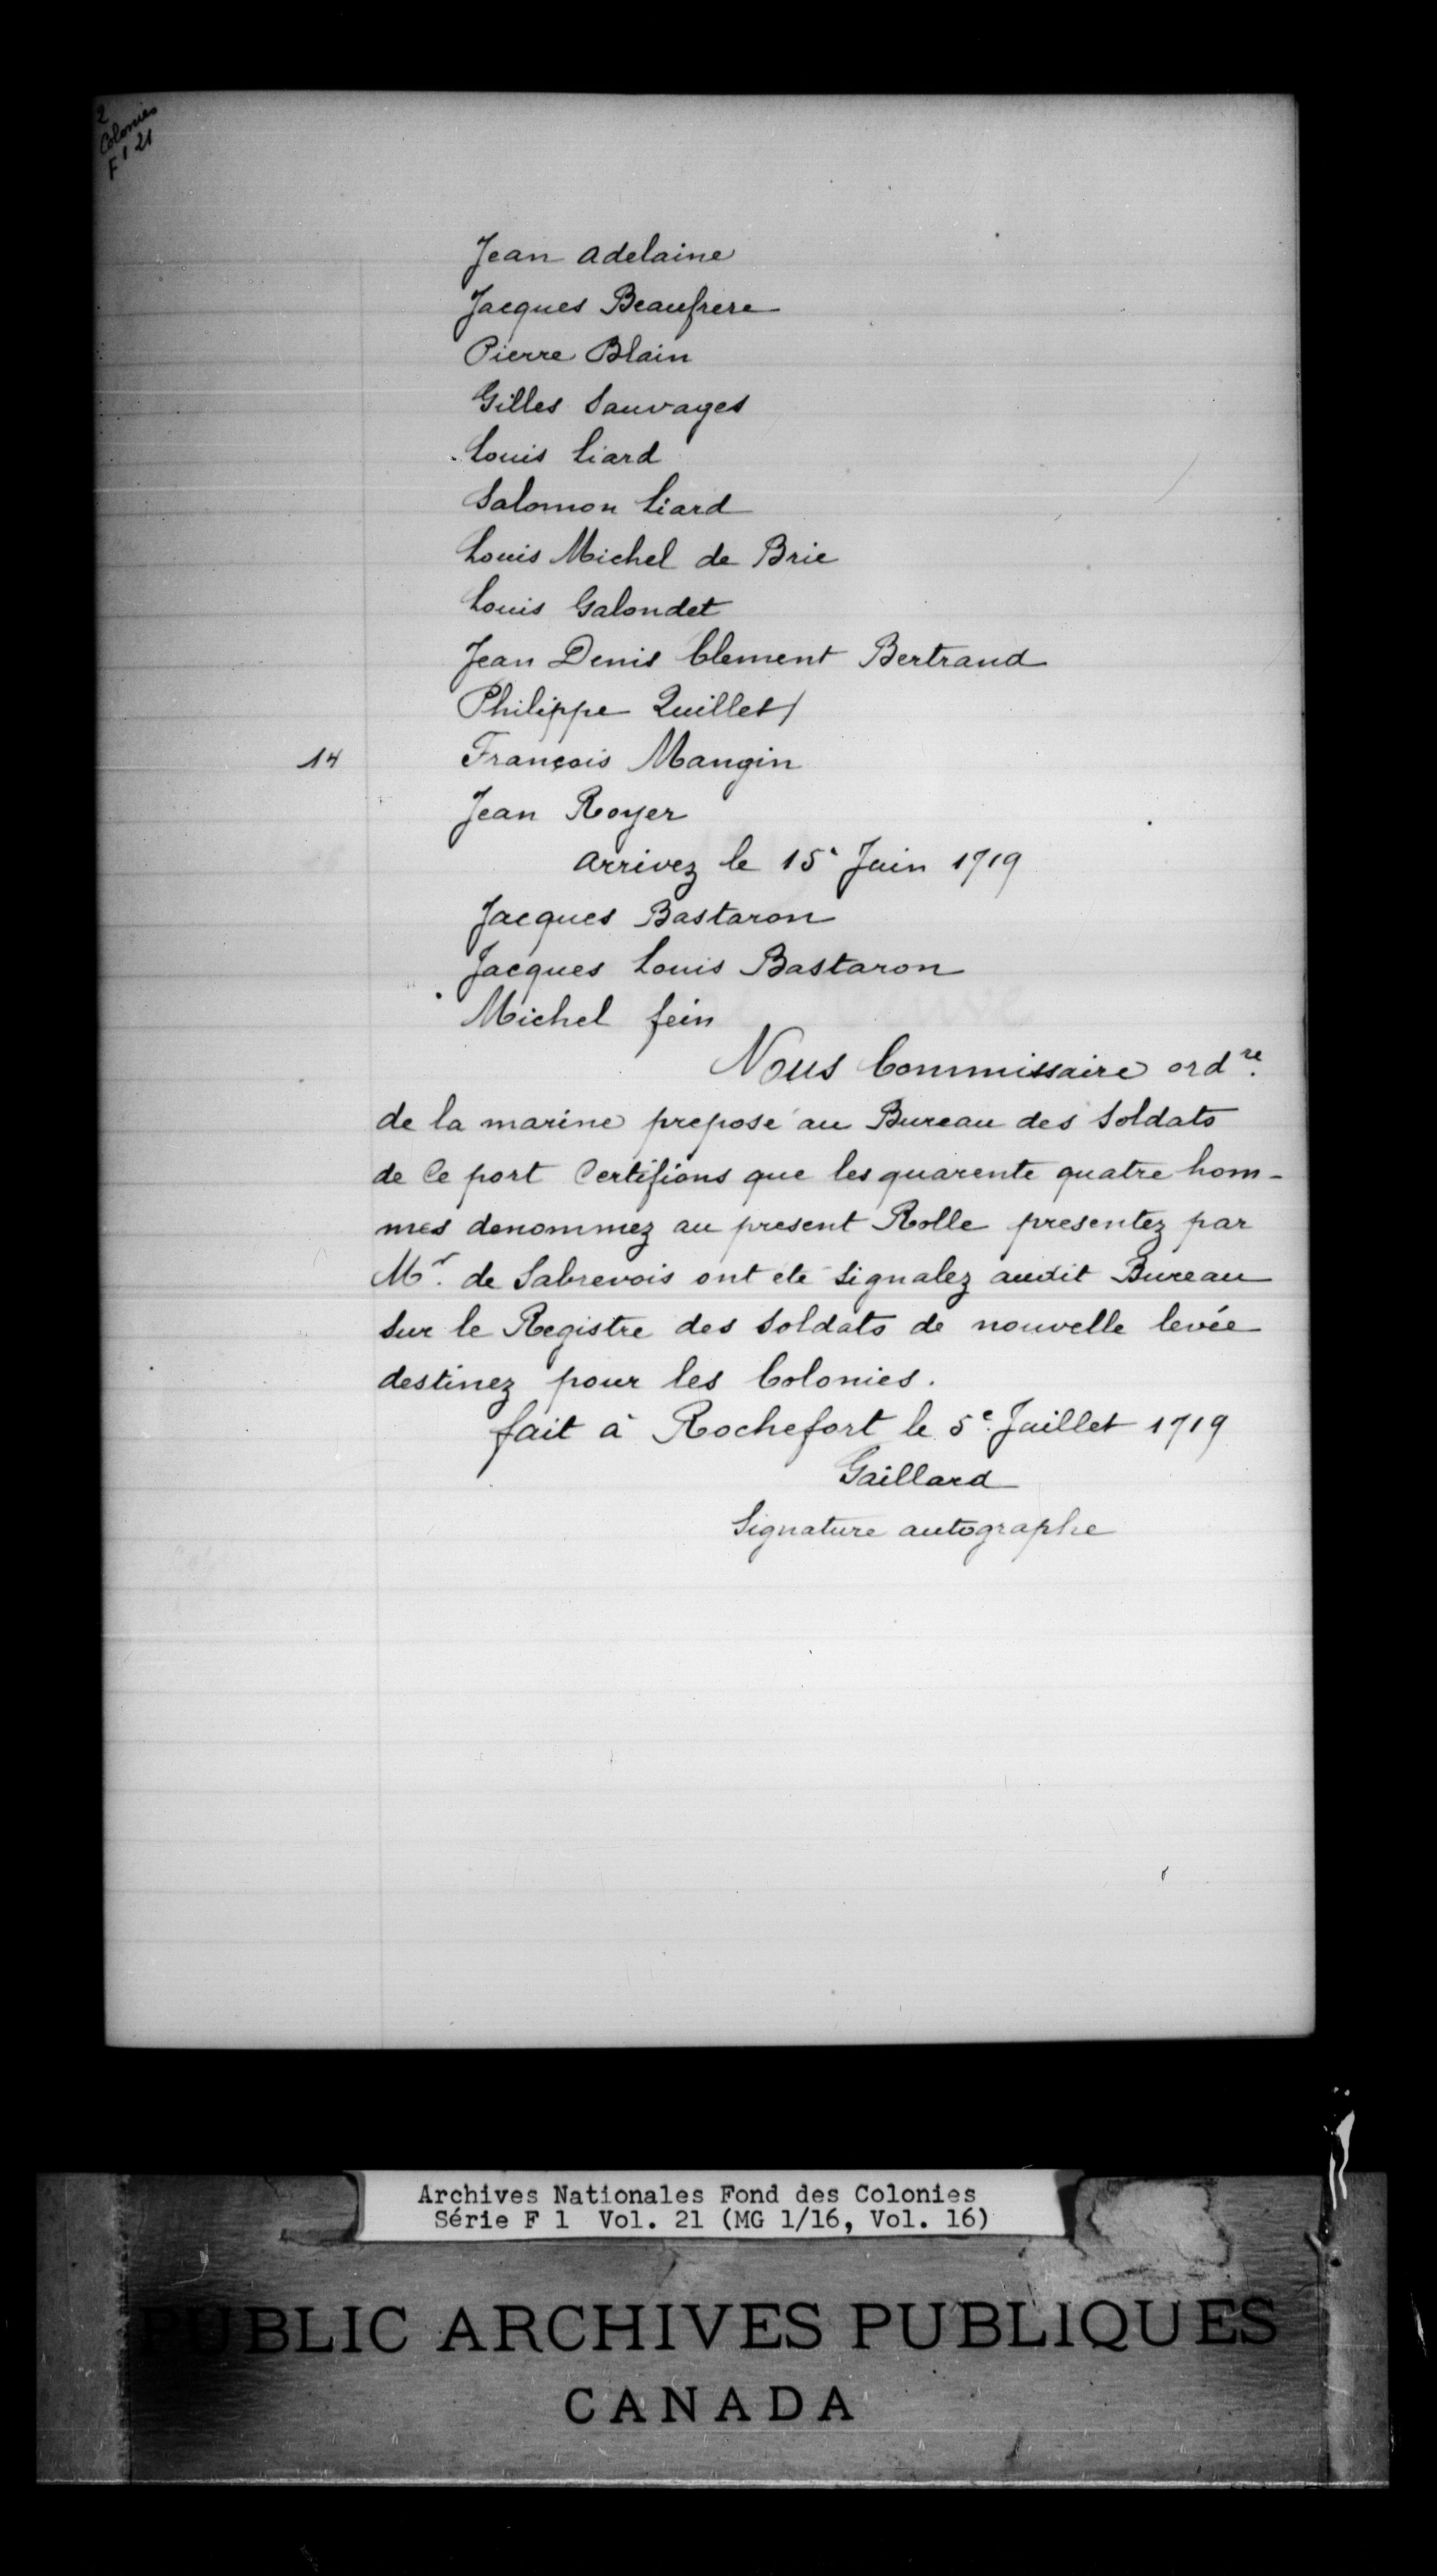 2
Colonies
F 1 21
Jean Adelaine
Jacques Beaufrere
Pierre Blain
Gilles Sauvages
Louis Liard
Salomon Liard
Louis Michel de Brie
Louis Galondet
Jean Denis Clement Bertrand
Philippe Quillet/
14 François Mangin
Jean Royer
arrivez le 15e Juin 1719
Jacques Bastaron
Jacques Louis Bastaron
Michel fein
Nous Commissaire ordre.
de la marine preposé au Bureau des Soldats
de Ce port Certifions que les quarente quatre hom-
mes denommez au present Rolle presentez par
Mr. de Sabrevois ont été Signalez audit Bureau
Sur le Registre des Soldats de nouvelle levée
destinez pour les Colonies.
fait à Rochefort le 5e. Juillet 1719
Gaillard
Signature autographe
Archives Nationales Fond des Colonies
Série F 1 Vol. 21 (MG 1/16, Vol. 16)
PUBLIC ARCHIVES PUBLIQUES
CANADA